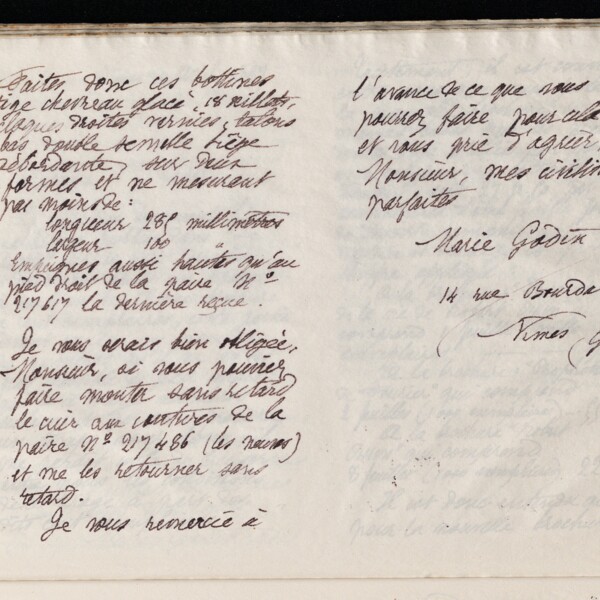 Faites donc ces bottines
tige chevreau glacé, 18 œillets,
claques droites vernies, talons
bas double semelle liège
débordante, sur deux
formes et ne mesurant
pas moins de:
longueur 285 millimètres
largeur 100 "
Empeignes aussi hautes qu'au
pied droit de la paire No
217617 la dernière reçue.
Je vous serais bien obligée,
Monsieur, si vous pouviez
faire monter sans retard
le cuir aux coutures de la
paire No 217486 (les noires)
et me les retourner sans
retard.
Je vous remercie à
l'avance de ce que vous
pourrez faire pour cela
et vous prie d'agréer,
Monsieur, mes civilités
parfaites
Marie Godin
14 rue
Nîmes (G